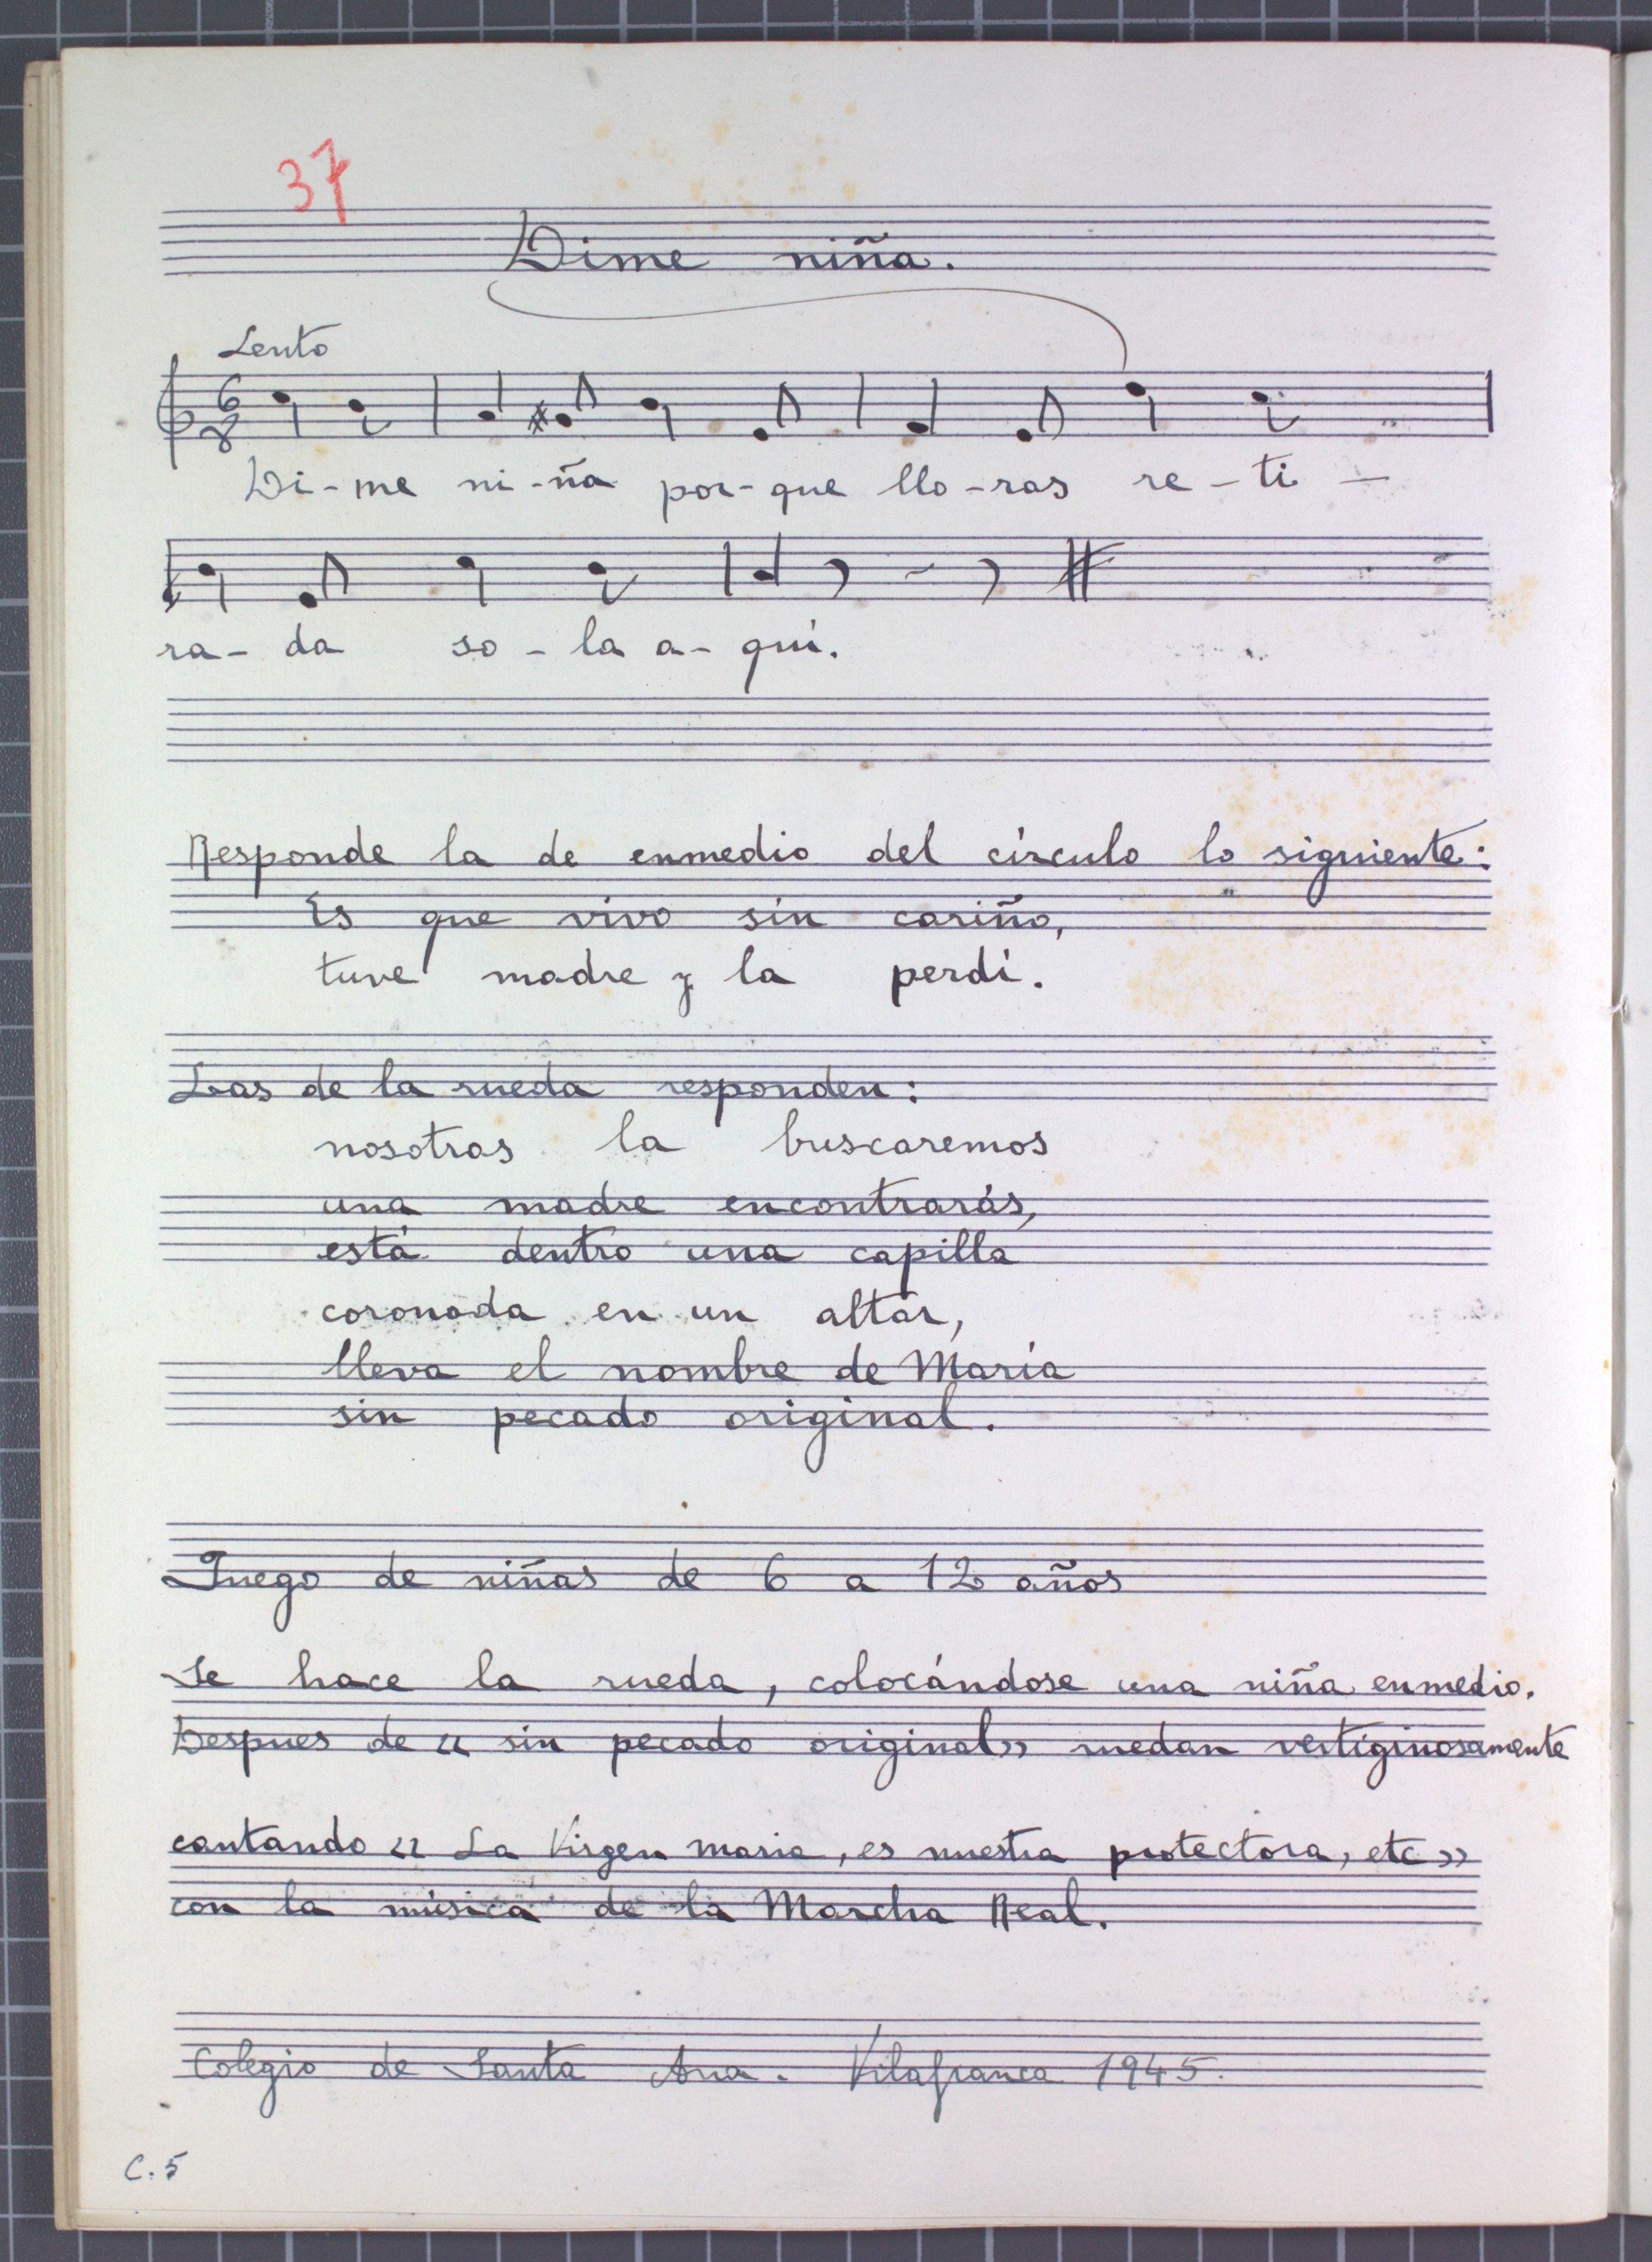 37
Dime niña.
Lento
6
8
Di-me ni-ña por-que llo-ras re-ti-
ra-da so-la a-quí.
Responde la de enmedio del círculo lo siguiente:
Es que vivo sin cariño,
tuve madre y la perdí.
Las de la rueda responden:
nosotras la buscaremos
una madre encontrarás,
está dentro una capilla
coronada en un altar,
lleva el nombre de María
sin pecado original.
Juego de niñas de 6 a 12 años
Se hace la rueda, colocándose una niña enmedio.
Despues de « sin pecado original» ruedan vertiginosamente
cantando « La Virgen maria, es nuestra protectora, etc »
con la música de la Marcha Real.
Colegio de Santa Ana. Vilafranca 1945.
C. 5